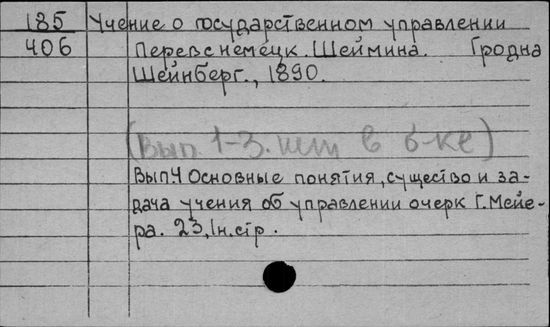 185 Учение о государственном управлении
406 Перев с немецк. Шеймина. Гродна
Шейнберг., 1890.
(Вып. 1-3. нет в б-ке)
Вып 4 Основные понятия, существо и за-
дача учения об управлении очерк Г. Мейе-
ра. 23, 1н. стр.